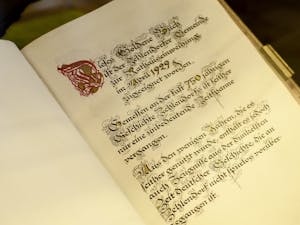 Dieses Goldene Buch
ist der Zehlendorfer Gemeinde
zur Rathauseinweihung
im April 1929
zugeeignet worden.
Gemessen an der fast 750 jährigen
Geschichte Zehlendorfs ist seither
nur eine unbedeutende Zeitspanne
vergangen.
Aus den wenigen Jahren, die es
seither genutzt wurde, enthält es jedoch
auch Zeugnisse aus der dunkelsten
Zeit deutscher Geschichte, die an
Zehlendorf nicht spurlos vorüber
gegangen ist